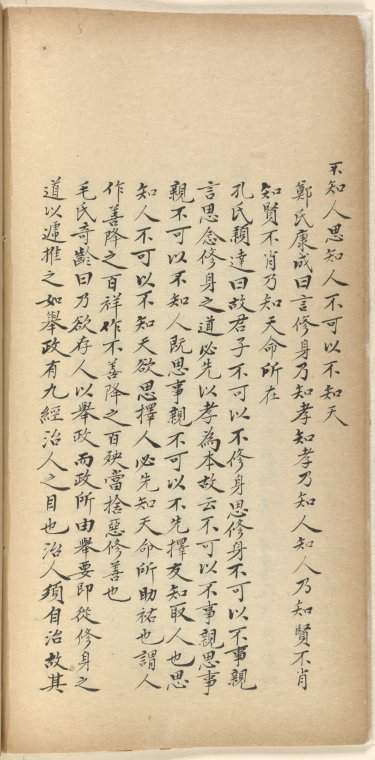 不知人思知人不可以不知天
鄭氏康成曰言修身乃知孝知孝乃知人知人乃知賢不肖
知賢不肖乃知天命所在
孔氏穎達曰故君子不可以不修身思修身不可以不事親
言思念修身之道必先以孝為本故云不可以不事親思事
親不可以不知人既思事親不可以不先擇友知取人也思
知人不可以不知天欲思擇人必先知天命所助祐也謂人
作善降之百祥作不善降之百殃當捨惡修善也
毛氏奇齡曰乃欲存人以舉政而政所由舉要即從修身之
道以遞推之如舉政有九經治人之目也治人須自治故其